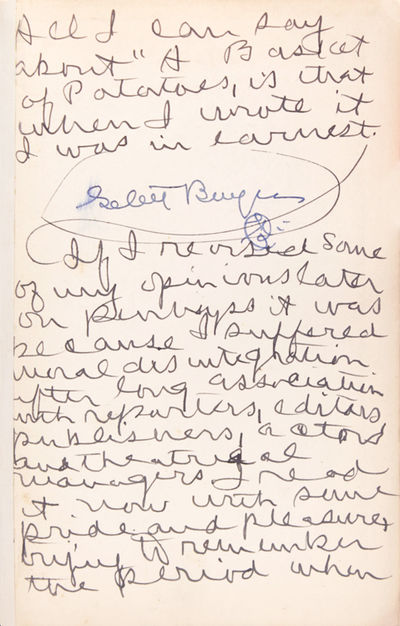 All I can say
about "A Basket
of Potatoes, is that
when I wrote it
I was in earnest.
Gelett Burgess
If I revised some
of my opinions later
on perhaps it was
because I suffered
moral disintegration
after long association
with reporters, editors
publishers, actors
and theatrical
managers I read
it now with some
pride and pleasure,
trying to remember
the period when